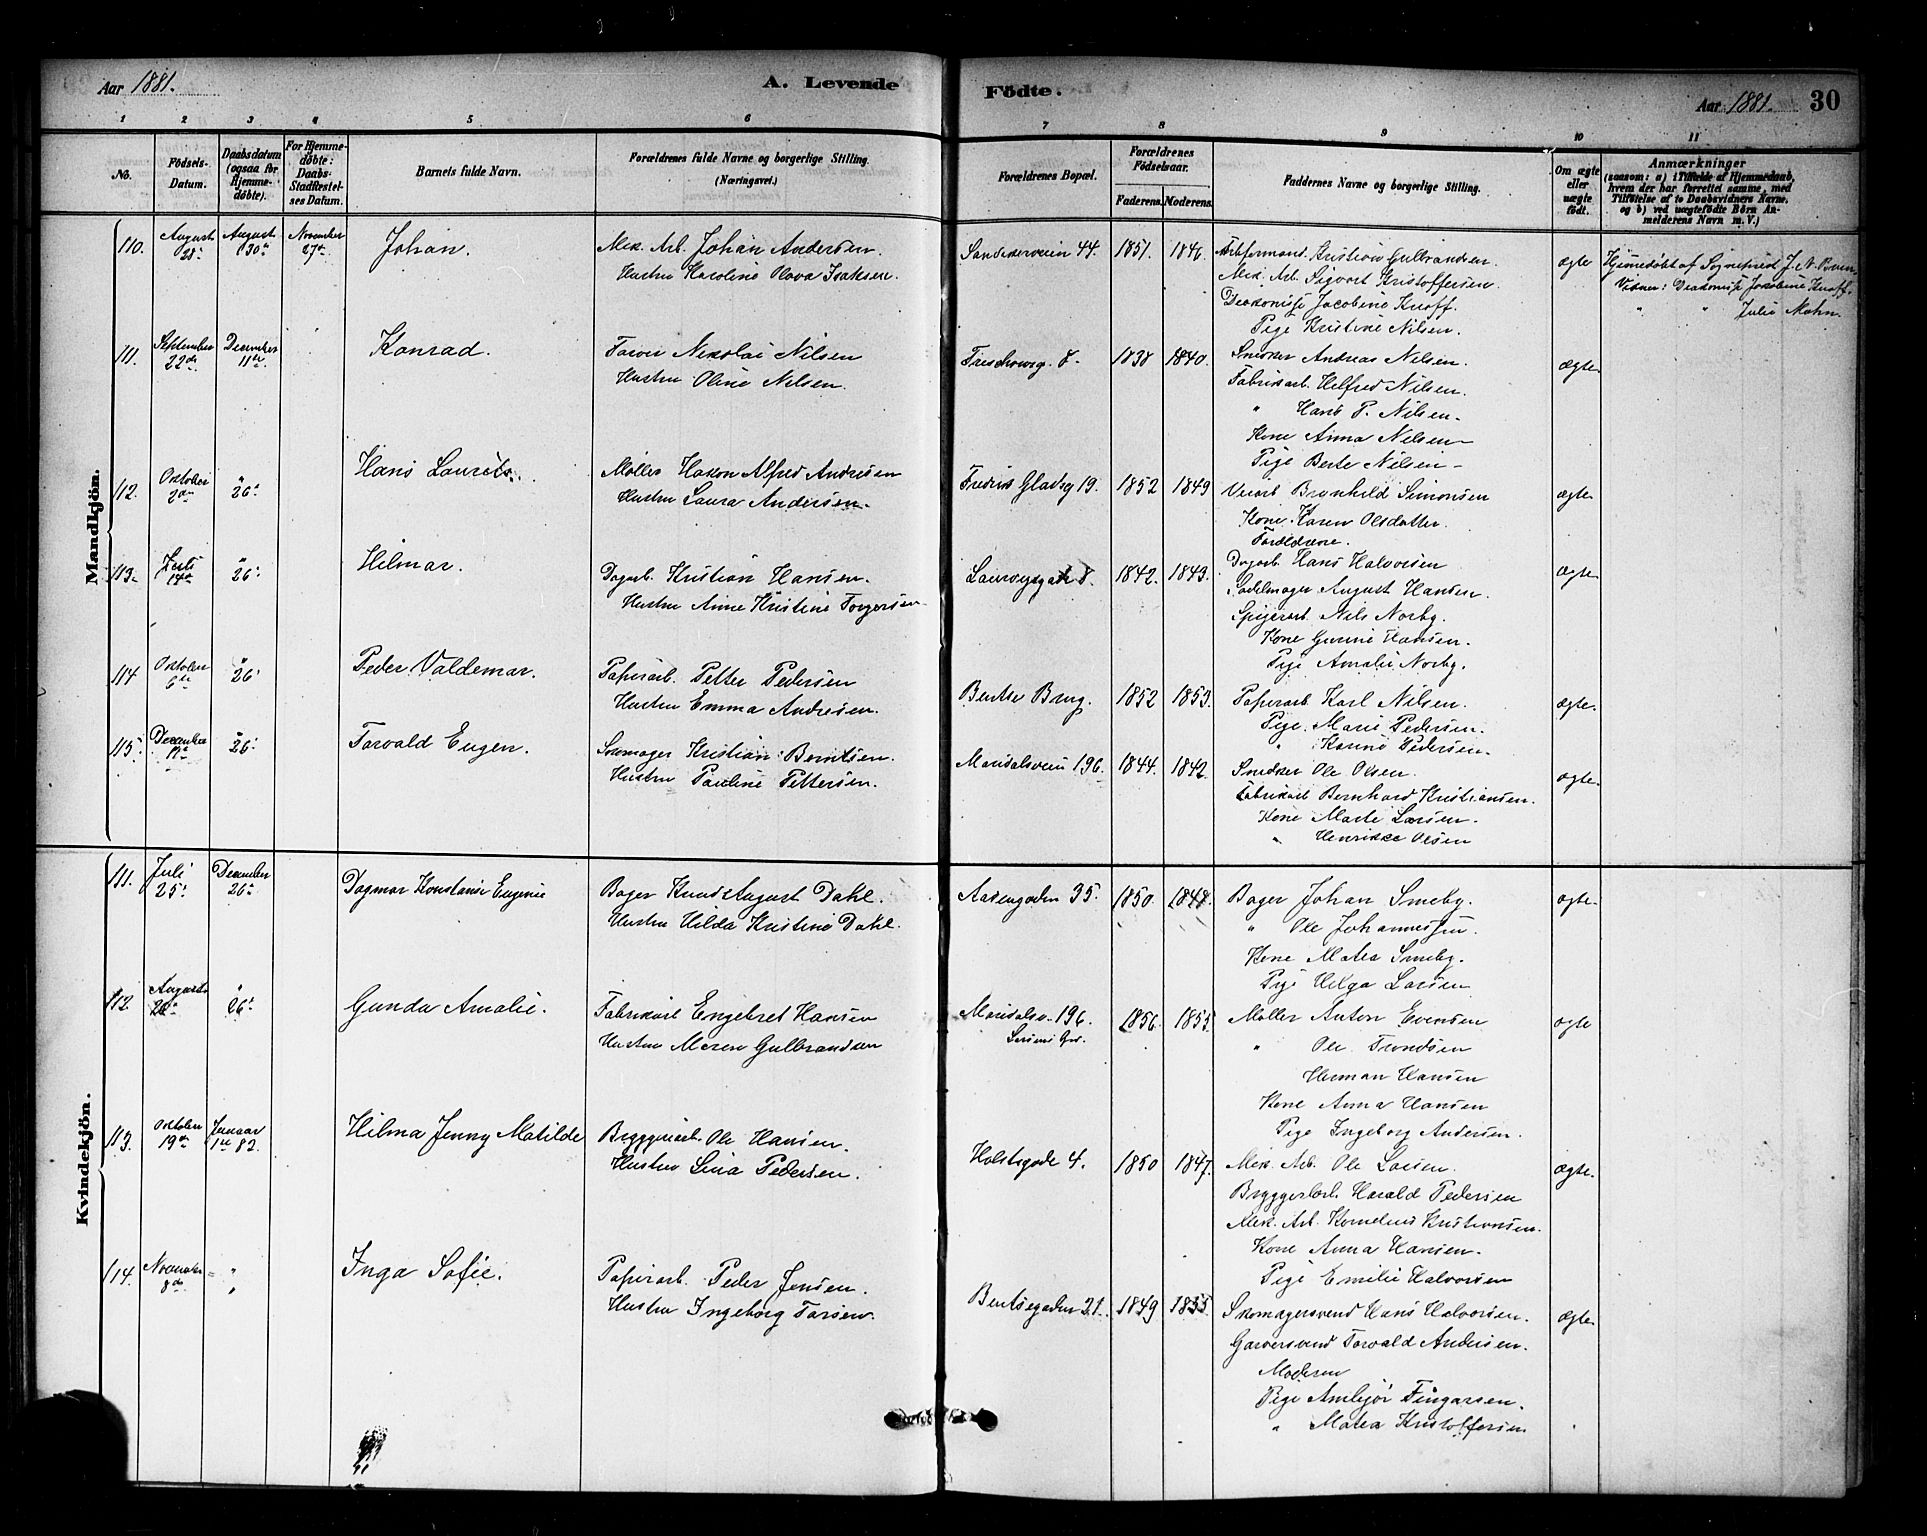 Aar 1881.
A. Levende
Födte.
Aar 1881. 30
1 2 3 4 5 6 7 8 9 10 11
No.
Födsels-
Datum.
Daabsdatum
(ogsaa for
Hjemme-
döbte).
For Hjemme-
döbte:
Daabs-
Stadfæstel-
ses Datum.
Barnets fulde Navn.
Forældrenes fulde Navne og borgerlige Stilling.
(Næringsvei.)
Forældrenes Bopæl.
Forældrenes
Födselsaar.
Faderens. Moderens.
Faddernes Navne og borgerlige Stilling.
Om ægte
eller
uægte
födt.
Anmærkninger
(saasom: a) i Tilfælde af Hjemmedaab,
hvem der har forrettet samme, med
Tilföielse af to Daabsvidners Navne,
og b) ved uægtefödte Börn An-
melderens Navn m. V.)
Mandkjön.
110. August 28de August 30te November 27de Johan. Mek. Arb. Johan Andersen
Hustru Karoline Olava Isaksen.
Sandakerveien 44. 1851. 1846.
Arbformand. Kristian Gulbrandsen.
Mek. Arb. Sigvart Kristoffersen.
Diakonisse Jacobine Knoff.
Pige Kristine Nilsen.
ægte
Hjemmedöbt af Sognepræst J. N.
Vidner: Diakonisse Jakobine Knoff.
" " Julie Mohn.
111. September 22de December 11te Konrad. Farver Nikolai Nilsen
Hustru Oline Nilsen.
8. 1838 1840.
Snedker Andreas Nilsen.
Fabrikarb. Helfred Nilsen.
" Hans P. Nilsen.
Kone Anna Nilsen
Pige Berte Nilsen
ægte.
112. Oktober 2den " 26. Hans Laurits. Møller Hakon Alfred Andresen
Hustru Laura Andersen.
Fredrik Gladsg 19. 1852 1849
Væverb Brynhild Simonsen
Kone Karen Olsdatter.
Forældrene.
ægte
113. 14de " 26. Hilmar. Dagarb. Kristian Hansen.
Hustru Anne Kristine Torgersen
8. 1842. 1843.
Dagarb. Hans Halvorsen
Sadelmager August Hansen.
Spigerarb. Nils Norby.
Kone Gurine Hansen.
Pige Amalie Norby.
ægte
114 Oktober 6te " 26. Peder Valdemar. Papirarb. Petter Pedersen
Hustru Emma Andresen.
Bentse Brug. 1852 1853.
Papirarb. Karl Nilsen.
Pige Marie Pedersen.
" Karine Pedersen.
ægte.
115. December " 26. Torvald Eugen. Skomager Kristian Berntsen.
Hustru Pauline Pettersen.
Maridalsveien 196. 1844. 1842.
Snedker Ole Olsen.
Fabrikarb Bernhard Kristiansen.
Kone Marte Larsen.
" Henrikke Olsen
ægte.
Kvindekjön.
111. Juli 25. December 26de Dagmar Konstanse Eugenie Bager Knud August Dahl.
Hustru Hilda Kristine Dahl.
Aasengaden 35. 1850. 1848.
Bager Johan Smeby.
" Ole Johannessen.
Kone Matea Smeby.
Pige Helga Larsen
ægte.
112. August 26de " 26de Gunda Amalie. Fabrikarb Engebret Hansen
Hustru Maren Gulbrandsen
Maridalsv. 196. 1856. 1855.
Møller Anton Evensen
" Ole Trondsen
Herman Hansen
Kone Anna Hansen
Pige Ingeborg Andersen.
ægte
113. Oktober 19de Januar 1ste 82. Hilma Jenny Matilde Bryggeriarb. Ole Hansen.
Hustru Lina Pedersen.
Holstsgade 4. 1850 1847.
Mek. Arb. Ole Larsen.
Bryggeriarb. Harald Pedersen
Mek. Arb. Kornelius Kristiansen.
Kone Anna Hansen.
Pige Emilie Halvorsen
ægte.
114. November 8de " " Inga Sofie. Papirarb. Peder Jensen.
Hustru Ingeborg Larsen.
Bentsegaden 21. 1849 1855.
Skomagersvend Hans Halvorsen.
Garversvend Torvald Andersen.
Moderen
Pige Fingarsen.
" Matea Kristoffersen
ægte.